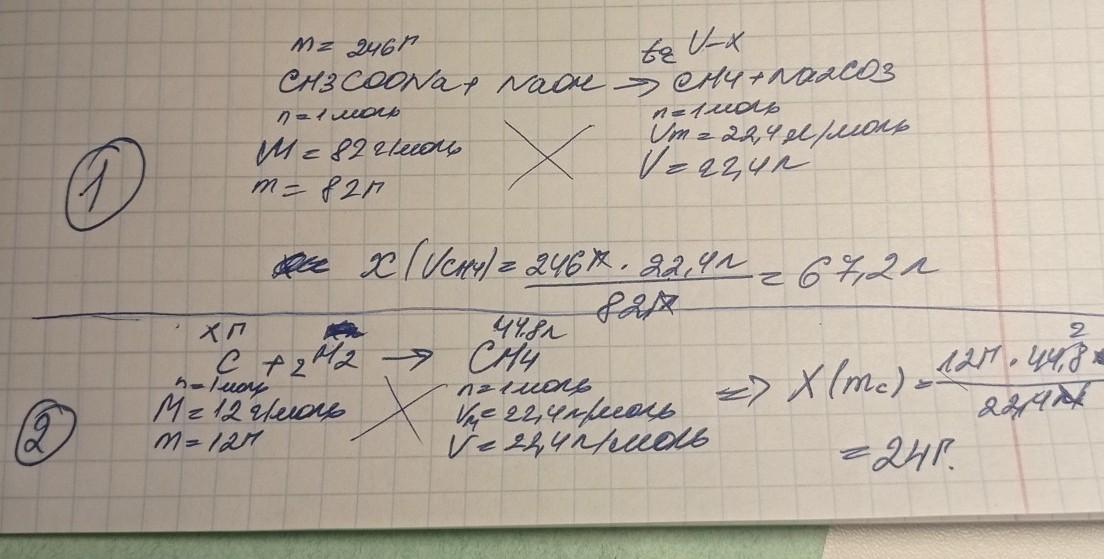 m = 246г t° V-x
CH3COONa + NaOH → CH4 + Na2CO3
n = 1 моль n = 1 моль
M = 82 г/моль Vm = 22,4 л/моль
m = 82г V = 22,4л
1
X (VCH4) = 246г · 22,4л = 67,2л
82г
xг 44.8л
C + 2H2 → CH4
n = 1 моль n = 1 моль
M = 12 г/моль VM = 22,4 л/моль
m = 12г V = 22,4 л/моль
2
⇒ X (mc) = 12г · 44,8 2
22,4л
= 24г.